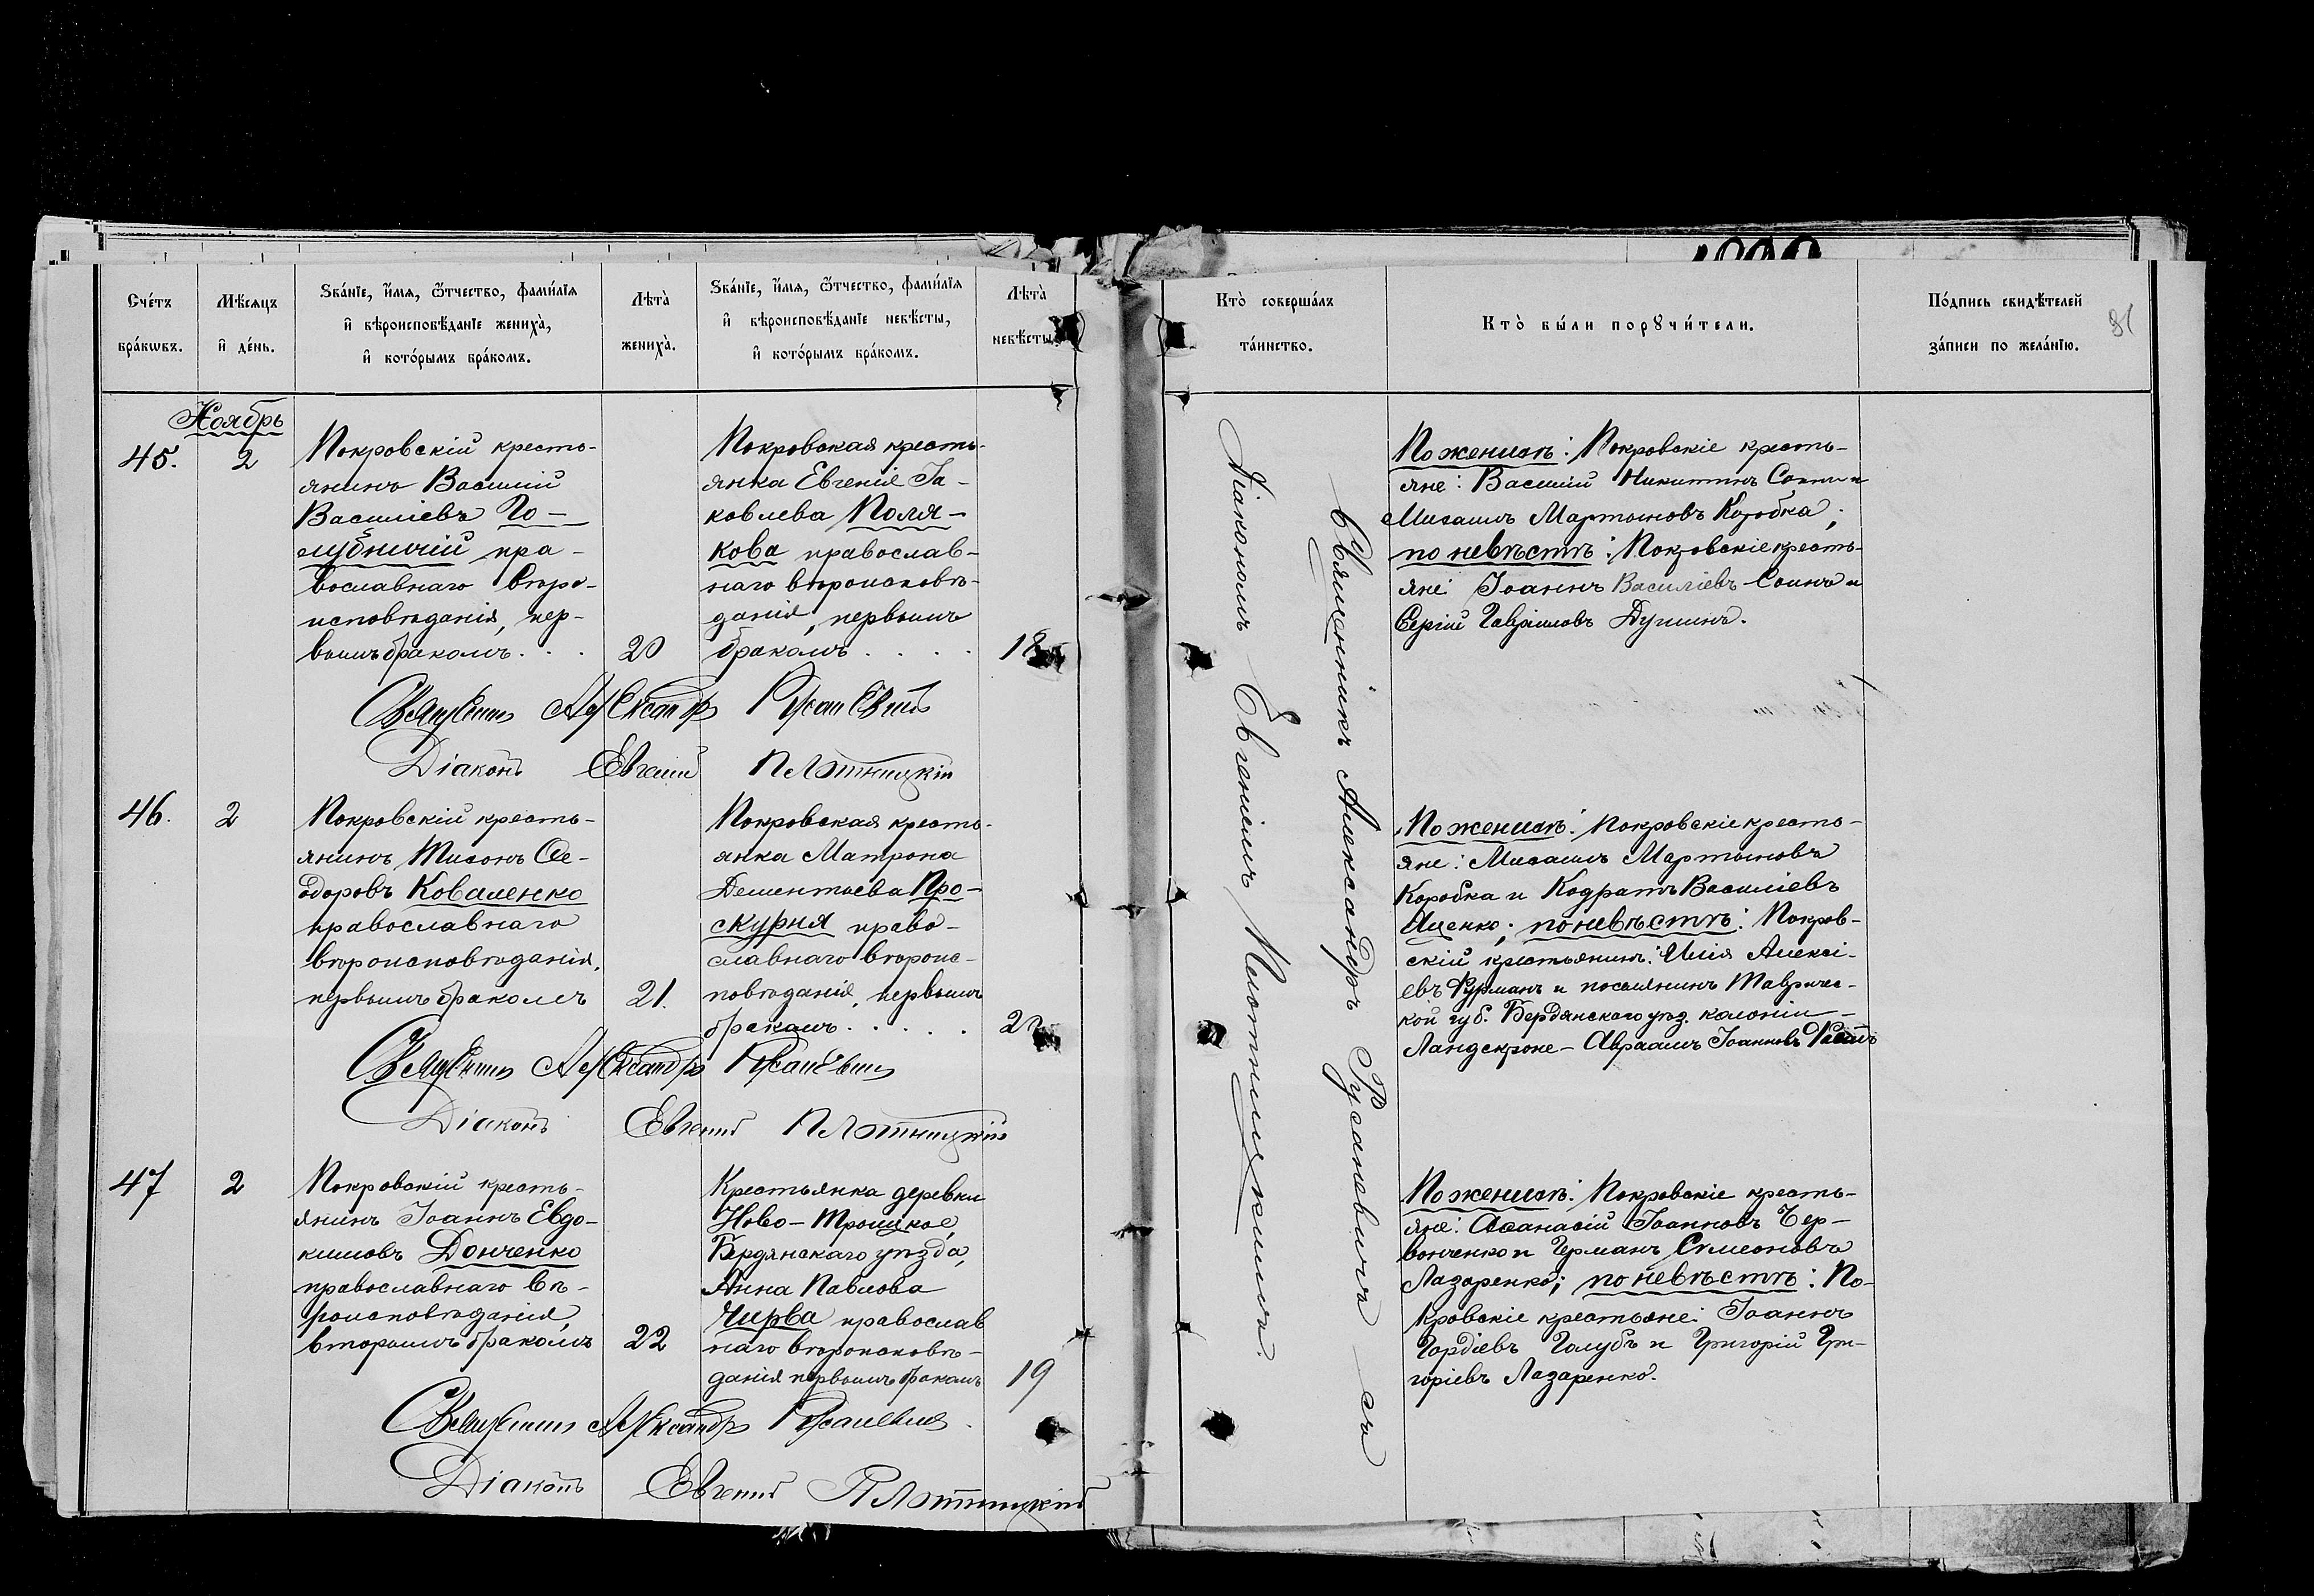 Счетъ
браковъ.
Мѣсяцъ
и день.
Званіе, имя, отчество, фамилія
и вѣроисповѣданіе жениха,
и которымъ бракомъ.
Лѣта
жениха.
Званіе, имя, отчество, фамилія
и вѣроисповѣданіе невѣсты,
и которымъ бракомъ.
Лѣта
невѣсты.
Кто совершалъ
таинство.
Кто были поручители.
Подпись свидѣтелей
записи по желанію.
Ноябрь
45.
2
Покровскій кресть-
янинъ Василій
Василіевъ Го-
лубничій пра-
вославнаго вѣро-
исповѣданія, пер-
вымъ бракомъ. . .
20
Покровская кресть-
янка Евгенія Іа-
ковлева Поля-
кова православ-
наго вѣроисповѣ-
данія, первымъ
бракомъ . . . .
18
Священникъ Александръ Русаневичъ
Діаконъ Евгеній Плотницкій
По женихѣ: Покровскіе кресть-
яне: Василій Никитинъ и
Михаилъ Мартыновъ Коробка;
по невѣстѣ: Покровскіе кресть-
яне: Іоаннъ Василіевъ и
Сергій Гавріиловъ
46.
2
Покровскій кресть-
янинъ Тихонъ Ѳе-
одоровъ Коваленко
православнаго
вѣроисповѣданія,
первымъ бракомъ
21.
Покровская кресть-
янка Матрона
Дементьева Про-
скурня право-
славнаго вѣроис-
повѣданія, первымъ
бракомъ. . . . .
Священникъ Александръ Русаневичъ
Діаконъ Евгеній Плотницкій
По женихѣ: Покровскіе кресть-
яне: Михаилъ Мартыновъ
Коробка и Кодратъ Василіевъ
Яценко; по невѣстѣ: Покров-
скій крестьянинъ: Илія Алексі-
евъ Фурманъ и поселянинъ Тавричес-
кой губ. Бердянскаго уѣз. колоніи -
Ландскроне - Авраамъ Іоанновъ
47
2
Покровскій кресть-
янинъ Іоаннъ Евдо-
кимовъ Донченко
православнаго вѣ-
роисповѣданія,
вторымъ бракомъ
22
Крестьянка деревни
Ново-Троицкое,
Бердянскаго уѣзда,
Анна Павлова
Чирва православ
наго вѣроисповѣ-
данія первымъ бракомъ
19
Священникъ Александръ Русаневичъ
Діаконъ Евгеній Плотницкій
По женихѣ: Покровскіе кресть-
яне: Аѳанасій Іоанновъ Чер-
вонченко и Германъ Симеоновъ
Лазаренко; по невѣстѣ: По-
кровскіе крестьяне: Іоаннъ
Гордіевъ Голубъ и Григорій Гри-
горіевъ Лазаренко.
Священникъ Александръ Русаневичъ съ
Діакономъ Евгеніемъ Плотницкимъ.